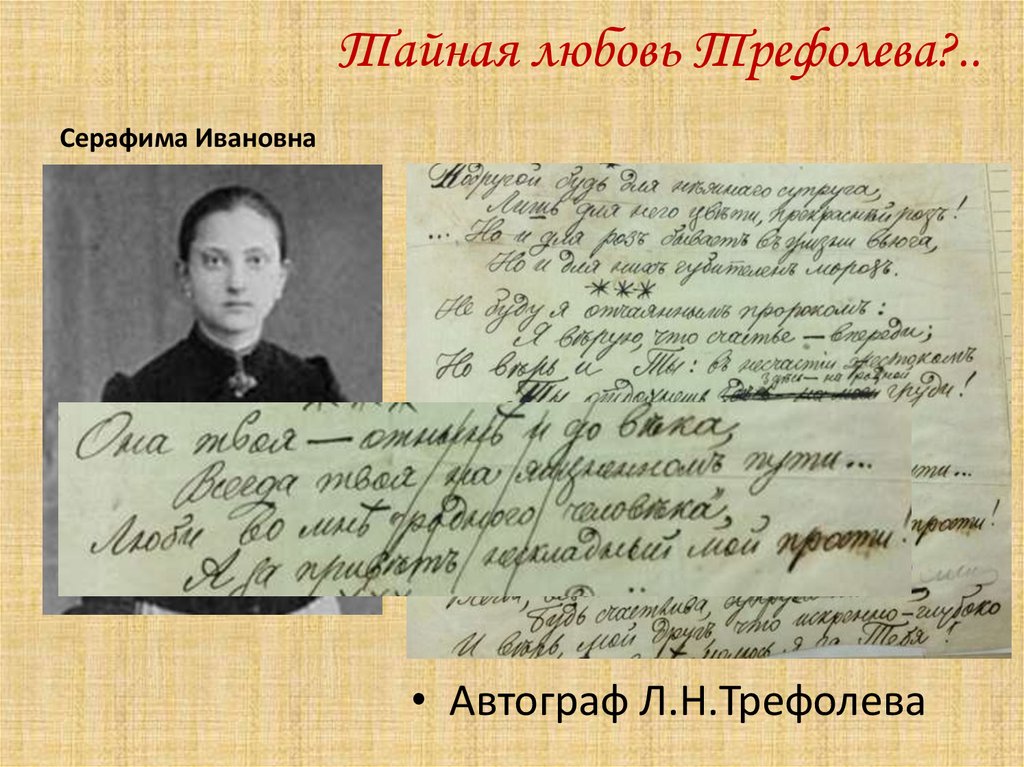 Тайная любовь Трефолева?..
Серафима Ивановна
Подругой будь для нѣжнаго супруга,
Лишь для него цвѣти, прекраснѣй розъ!
... Но и для розъ бываетъ въ жизни вьюга,
Но и для нихъ губителенъ морозъ.
***
Не буду я отчаяннымъ пророкомъ:
Я вѣрую, что счастье — впереди;
Но вѣрь и Ты: въ несчастіи жестокомъ
Здѣсь — на родной
Ты отдохнешь груди!
Она твоя — отнынѣ и до вѣка,
Всегда твоя на жизненномъ пути...
Люби во мнѣ "роднаго человѣка",
А за привѣтъ нескладный мой прости!
ути...
прости!
Будь счастлива,
И вѣрь, мой другъ, что искренно-глубоко
молюсь я за Тебя!
• Автограф Л.Н.Трефолева